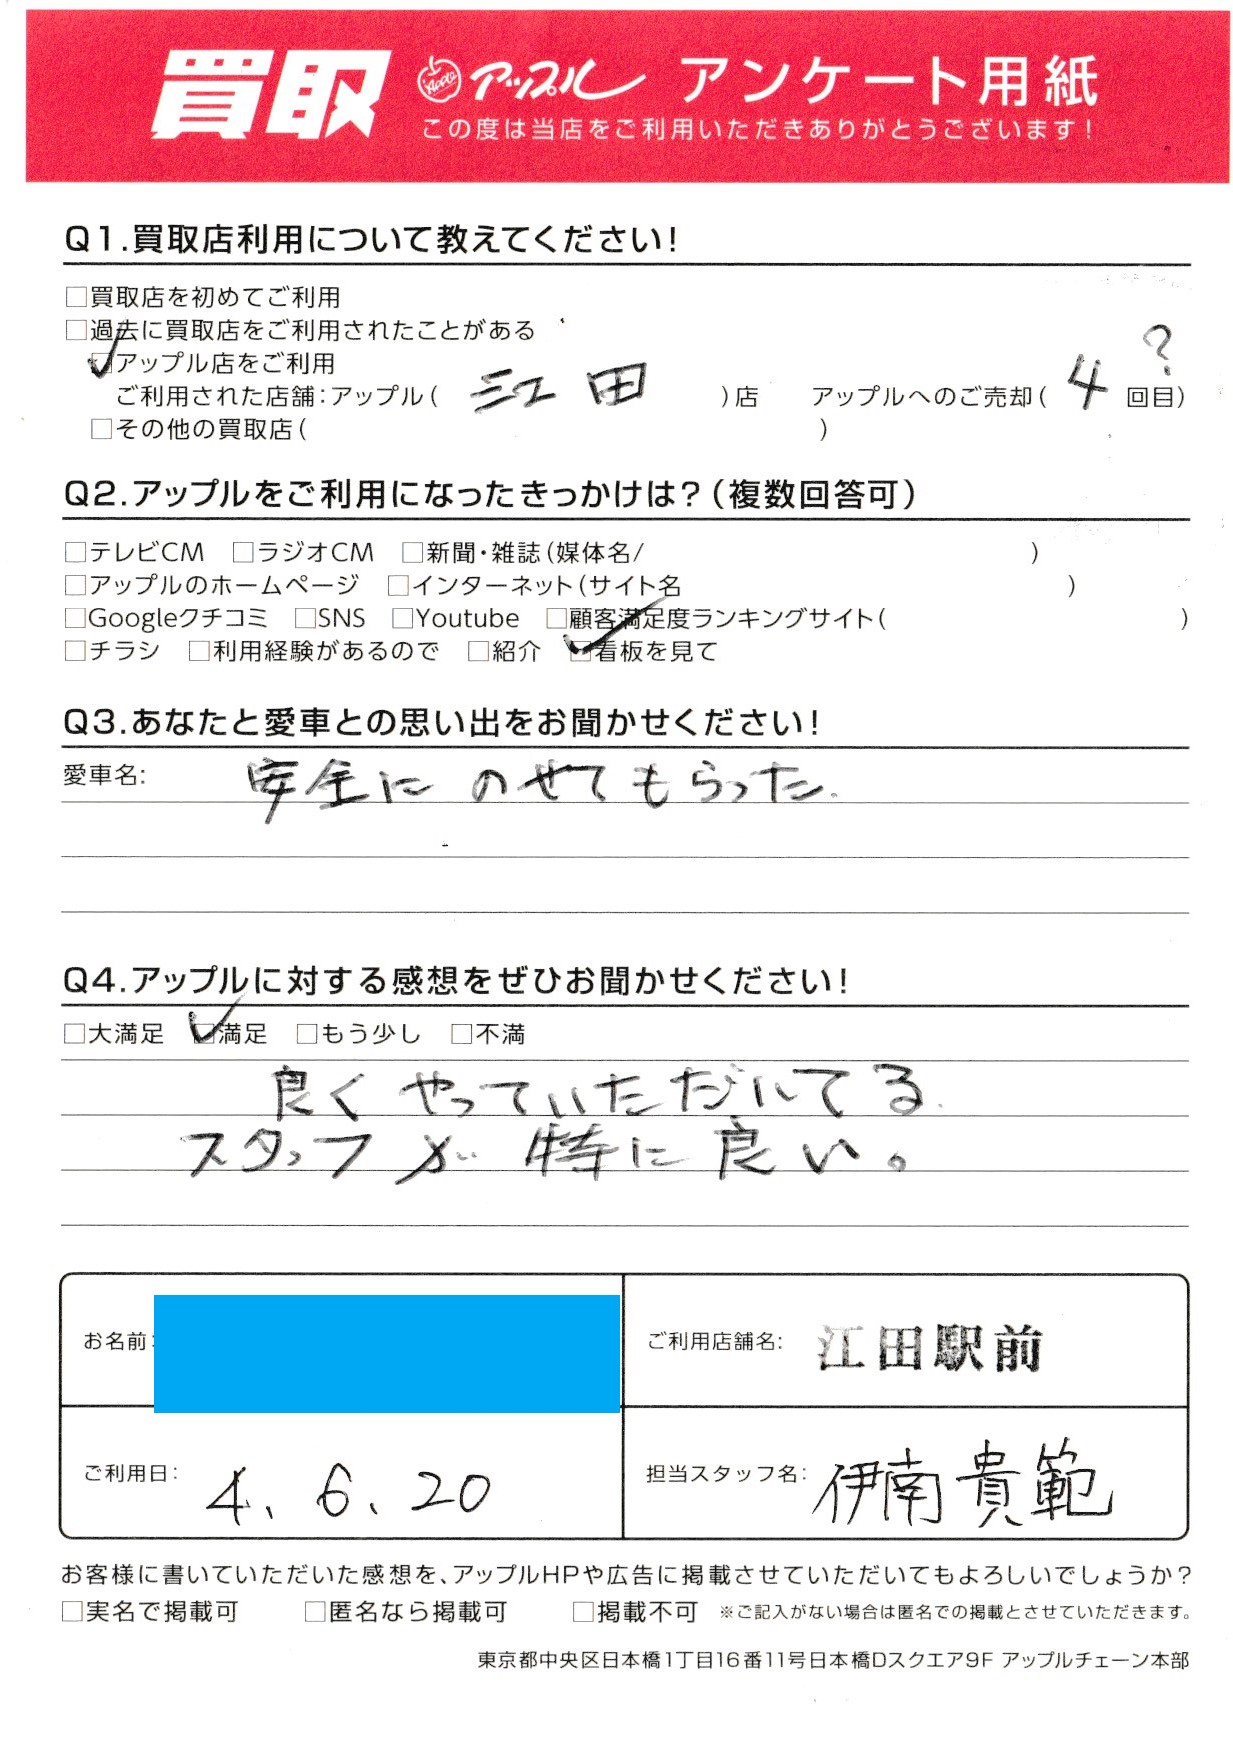 買取 Apple アップル アンケート用紙
この度は当店をご利用いただきありがとうございます!
Q1.買取店利用について教えてください!
□買取店を初めてご利用
□過去に買取店をご利用されたことがある
☑アップル店をご利用
ご利用された店舗:アップル( 江田 )店 アップルへのご売却( 4? 回目)
□その他の買取店( )
Q2.アップルをご利用になったきっかけは?(複数回答可)
□テレビCM □ラジオCM □新聞・雑誌(媒体名/ )
□アップルのホームページ □インターネット(サイト名 )
□Googleクチコミ □SNS □Youtube □顧客満足度ランキングサイト( )
□チラシ □利用経験があるので □紹介 ☑看板を見て
Q3.あなたと愛車との思い出をお聞かせください!
愛車名: 安全に のせてもらった.
Q4.アップルに対する感想をぜひお聞かせください!
□大満足 ☑満足 □もう少し □不満
良くやっていただいてる.
スタッフが特に良い。
お名前: ご利用店舗名: 江田駅前
ご利用日: 4、6、20 担当スタッフ名: 伊南貴範
お客様に書いていただいた感想を、アップルHPや広告に掲載させていただいてもよろしいでしょうか?
□実名で掲載可 □匿名なら掲載可 □掲載不可 ※ご記入がない場合は匿名での掲載とさせていただきます。
東京都中央区日本橋1丁目16番11号日本橋Dスクエア9F アップルチェーン本部